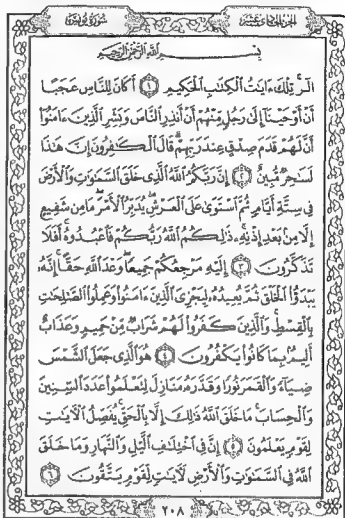 سورة يونس
الجزء الحادي عشر
بِسْمِ اللَّهِ الرَّحْمَٰنِ الرَّحِيمِ
الٓر تِلْكَ ءَايَٰتُ ٱلْكِتَٰبِ ٱلْحَكِيمِ ١ أَكَانَ لِلنَّاسِ عَجَبًا
أَنْ أَوْحَيْنَآ إِلَىٰ رَجُلٍ مِّنْهُمْ أَنْ أَنذِرِ ٱلنَّاسَ وَبَشِّرِ ٱلَّذِينَ ءَامَنُوٓا۟
أَنَّ لَهُمْ قَدَمَ صِدْقٍ عِندَ رَبِّهِمْ ۗ قَالَ ٱلْكَٰفِرُونَ إِنَّ هَٰذَا
لَسَٰحِرٌ مُّبِينٌ ٢ إِنَّ رَبَّكُمُ ٱللَّهُ ٱلَّذِى خَلَقَ ٱلسَّمَٰوَٰتِ وَٱلْأَرْضَ
فِى سِتَّةِ أَيَّامٍ ثُمَّ ٱسْتَوَىٰ عَلَى ٱلْعَرْشِ ۖ يُدَبِّرُ ٱلْأَمْرَ ۖ مَا مِن شَفِيعٍ
إِلَّا مِنۢ بَعْدِ إِذْنِهِۦ ۚ ذَٰلِكُمُ ٱللَّهُ رَبُّكُمْ فَٱعْبُدُوهُ ۚ أَفَلَا
تَذَكَّرُونَ ٣ إِلَيْهِ مَرْجِعُكُمْ جَمِيعًا ۖ وَعْدَ ٱللَّهِ حَقًّا ۚ إِنَّهُۥ
يَبْدَؤُا۟ ٱلْخَلْقَ ثُمَّ يُعِيدُهُۥ لِيَجْزِىَ ٱلَّذِينَ ءَامَنُوا۟ وَعَمِلُوا۟ ٱلصَّٰلِحَٰتِ
بِٱلْقِسْطِ ۚ وَٱلَّذِينَ كَفَرُوا۟ لَهُمْ شَرَابٌ مِّنْ حَمِيمٍ وَعَذَابٌ
أَلِيمٌۢ بِمَا كَانُوا۟ يَكْفُرُونَ ٤ هُوَ ٱلَّذِى جَعَلَ ٱلشَّمْسَ
ضِيَآءً وَٱلْقَمَرَ نُورًا وَقَدَّرَهُۥ مَنَازِلَ لِتَعْلَمُوا۟ عَدَدَ ٱلسِّنِينَ
وَٱلْحِسَابَ ۚ مَا خَلَقَ ٱللَّهُ ذَٰلِكَ إِلَّا بِٱلْحَقِّ ۚ يُفَصِّلُ ٱلْءَايَٰتِ
لِقَوْمٍ يَعْلَمُونَ ٥ إِنَّ فِى ٱخْتِلَٰفِ ٱلَّيْلِ وَٱلنَّهَارِ وَمَا خَلَقَ
ٱللَّهُ فِى ٱلسَّمَٰوَٰتِ وَٱلْأَرْضِ لَءَايَٰتٍ لِّقَوْمٍ يَتَّقُونَ ٦
٢٠٨